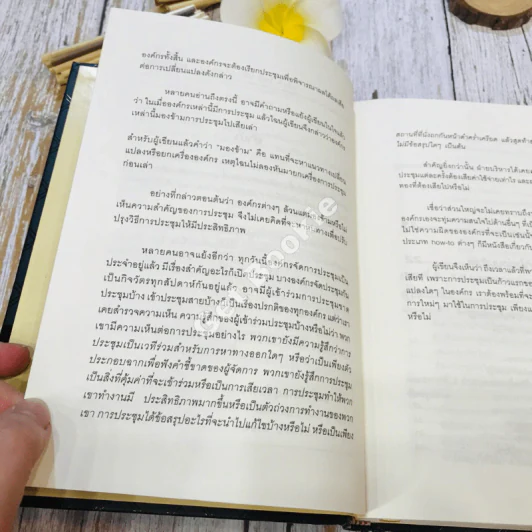 องค์กรทั้งสิ้น และองค์กรจะต้องเรียกประชุมเพื่อพิจารณาผลได้ผลเสีย
ต่อการเปลี่ยนแปลงดังกล่าว
หลายคนอ่านถึงตรงนี้ อาจมีคำถามหรือแย้งผู้เขียนในใจแล้ว
ว่า ในเมื่อองค์กรเหล่านี้มีการประชุม แล้วไฉนผู้เขียนจึงกล่าวว่าองค์กร
เหล่านี้มองข้ามการประชุมไปเสียเล่า
สำหรับผู้เขียนแล้วคำว่า "มองข้าม" คือ แทนที่จะหาแนวทางเปลี่ยน
แปลงหรือยกเครื่ององค์กร เหตุไฉนไม่ลองหันมายกเครื่องการประชุม
ก่อนเล่า
อย่างที่กล่าวตอนต้นว่า องค์กรต่างๆ ล้วนแต่มองข้ามหรือไม่
เห็นความสำคัญของการประชุม จึงไม่เคยคิดที่จะหาแนวทางเพื่อปรับ
ปรุงวิธีการประชุมให้มีประสิทธิภาพ
หลายคนอาจแย้งอีกว่า ทุกวันนี้องค์กรจัดการประชุมเป็น
ประจำอยู่แล้ว มีเรื่องสำคัญอะไรก็เปิดประชุม บางองค์กรจัดประชุมกัน
เป็นกิจวัตรทุกสัปดาห์กันอยู่แล้ว อาจมีผู้เข้าร่วมการประชุมขาด
ประชุมบ้าง เข้าประชุมสายบ้างก็เป็นเรื่องปรกติของทุกองค์กร แต่ว่าเรา
เคยสำรวจความเห็น ความรู้สึกของผู้เข้าร่วมประชุมบ้างหรือไม่ว่า พวก
เขามีความเห็นต่อการประชุมอย่างไร พวกเขายังมีความรู้สึกว่าการ
ประชุมเป็นเวทีร่วมสำหรับการหาทางออกใดๆ หรือว่าเป็นเพียงตัว
ประกอบฉากเพื่อฟังคำชี้ขาดของผู้จัดการ พวกเขายังรู้สึกการประชุม
เป็นสิ่งที่คุ้มค่าที่จะเข้าร่วมหรือเป็นการเสียเวลา การประชุมทำให้พวก
เขาทำงานมี ประสิทธิภาพมากขึ้นหรือเป็นตัวถ่วงการทำงานของพวก
เขา การประชุมได้ข้อสรุปอะไรที่จะนำไปแก้ไขบ้างหรือไม่ หรือเป็นเพียง
สถานที่ที่นั่งถกกันหน้าดำคร่ำเครียด แล้วสุดท้าย
ไม่มีข้อสรุปใดๆ เป็นต้น
สำคัญยิ่งกว่านั้น ฝ่ายบริหารได้เคย
ประชุมแต่ละครั้งต้องเสียค่าใช้จ่ายเท่าไร และ
ทองที่ต้องเสียไปหรือไม่
เชื่อว่าส่วนใหญ่จะไม่เคยทราบถึง
องค์กรเองจะทุ่มความสนใจไปด้านอื่นๆ ที่
ไม่ใช่ความผิดขององค์กรที่จะเป็นเช่นนั้
ประเภท how-to ต่างๆ ก็มีหนังสือเกี่ยวกับ
ผู้เขียนจึงเห็นว่า ถึงเวลาแล้วที่
เสียที เพราะการประชุมเป็นก้าวแรกของ
แปลงใดๆ ในองค์กร เราต้องพร้อมที่จะ
การใหม่ๆ มาใช้ในการประชุม เพียงแ
หรือไม่